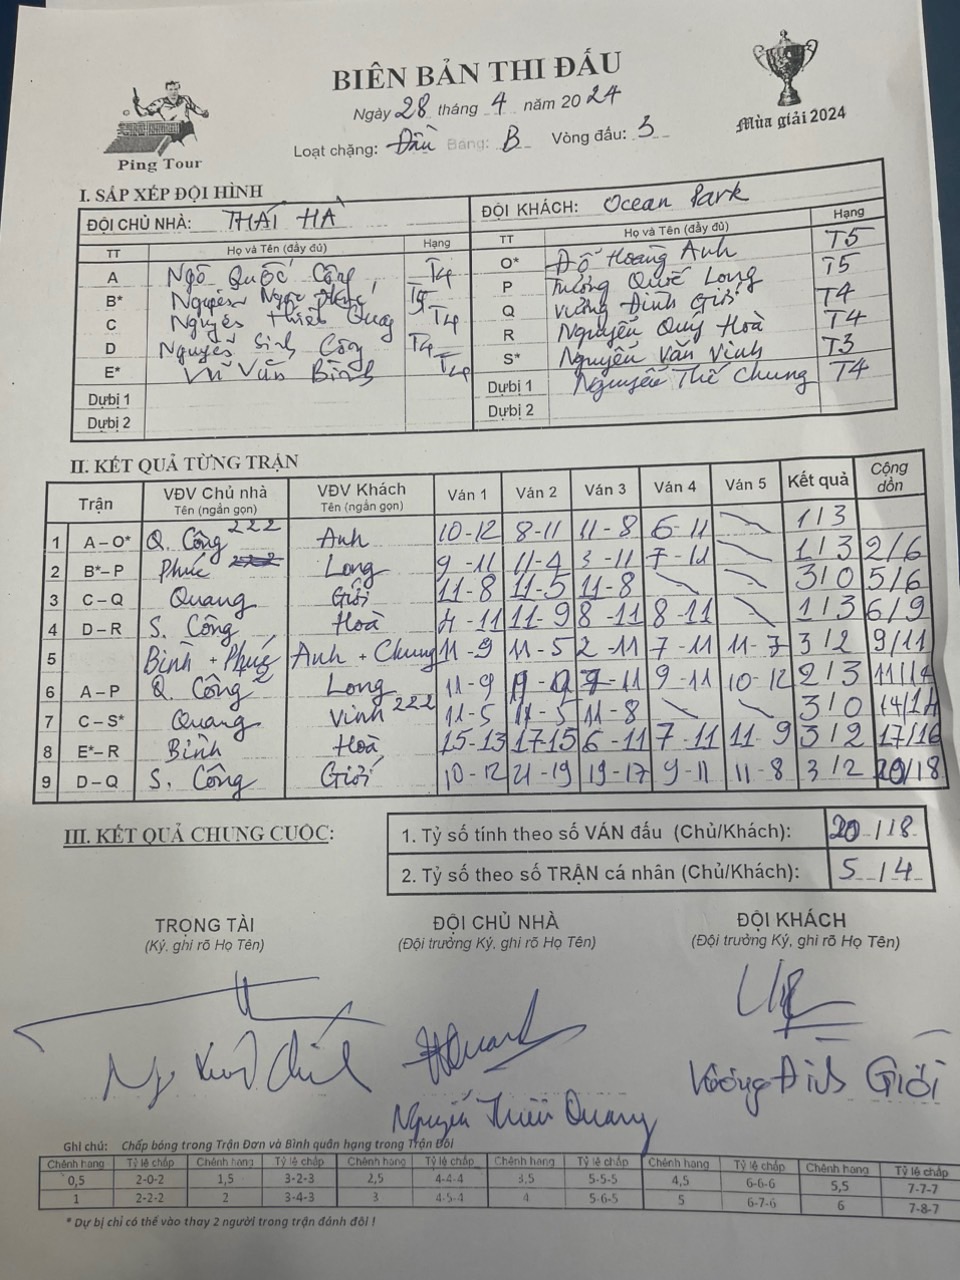 BIÊN BẢN THI ĐẤU
Ngày 28 tháng 4 năm 2024
Loạt chặng: Đầu Bảng: B Vòng đấu: 3
Ping Tour
Mùa giải 2024
I. SẮP XẾP ĐỘI HÌNH
ĐỘI CHỦ NHÀ: THÁI HÀ ĐỘI KHÁCH: Ocean Park
TT Họ và Tên (đầy đủ) Hạng TT Họ và Tên (đầy đủ) Hạng
A Ngô Quốc Công T4 O* Đỗ Hoàng Anh T5
B* Nguyễn Ngọc Phúc P Trương Quốc Long T5
C Nguyễn Thiết Quang T4 Q Vương Đình Giới T4
D Nguyễn Sinh Công T4 R Nguyễn Quý Hoà T4
E* Vũ Văn Bình T4 S* Nguyễn Văn Vinh T3
Dự bị 1 Dự bị 1 Nguyễn Thế Chung T4
Dự bị 2 Dự bị 2
II. KẾT QUẢ TỪNG TRẬN
Trận VĐV Chủ nhà Tên (ngắn gọn) VĐV Khách Tên (ngắn gọn) Ván 1 Ván 2 Ván 3 Ván 4 Ván 5 Kết quả Cộng dồn
1 A – O* Q. Công 222 Anh 10-12 8-11 11-8 6-11 1/3
2 B* – P Phúc Long 9-11 11-4 3-11 7-11 1/3 2/6
3 C – Q Quang Giới 11-8 11-5 11-8 3/0 5/6
4 D – R S. Công Hoà 4-11 11-9 8-11 8-11 1/3 6/9
5 Bình + Phúc Anh + Chung 11-9 11-5 2-11 7-11 11-7 3/2 9/11
6 A – P Q. Công Long 11-9 9-11 10-12 2/3 11/14
7 C – S* Quang Vinh 222 11-5 11-5 11-8 3/0 14/14
8 E* – R Bình Hoà 15-13 17-15 6-11 7-11 11-9 3/2 17/16
9 D – Q S. Công Giới 10-12 21-19 19-17 9-11 11-8 3/2 20/18
III. KẾT QUẢ CHUNG CUỘC:
1. Tỷ số tính theo số VÁN đấu (Chủ/Khách): 20/18
2. Tỷ số theo số TRẬN cá nhân (Chủ/Khách): 5/4
TRỌNG TÀI ĐỘI CHỦ NHÀ ĐỘI KHÁCH
(Ký, ghi rõ Họ Tên) (Đội trưởng Ký, ghi rõ Họ Tên) (Đội trưởng Ký, ghi rõ Họ Tên)
Vương Đình Giới
Nguyễn Thiết Quang
Ghi chú: Chấp bóng trong Trận Đơn và Bình quân hạng trong Trận Đôi
Chênh hạng Tỷ lệ chấp Chênh hạng Tỷ lệ chấp Chênh hạng Tỷ lệ chấp Chênh hạng Tỷ lệ chấp Chênh hạng Tỷ lệ chấp Chênh hạng Tỷ lệ chấp
0,5 2-0-2 1,5 3-2-3 2,5 4-4-4 3,5 5-5-5 4,5 6-6-6 5,5 7-7-7
1 2-2-2 2 3-4-3 3 4-5-4 4 5-6-5 5 6-7-6 6 7-8-7
* Dự bị chỉ có thể vào thay 2 người trong trận đánh đôi !